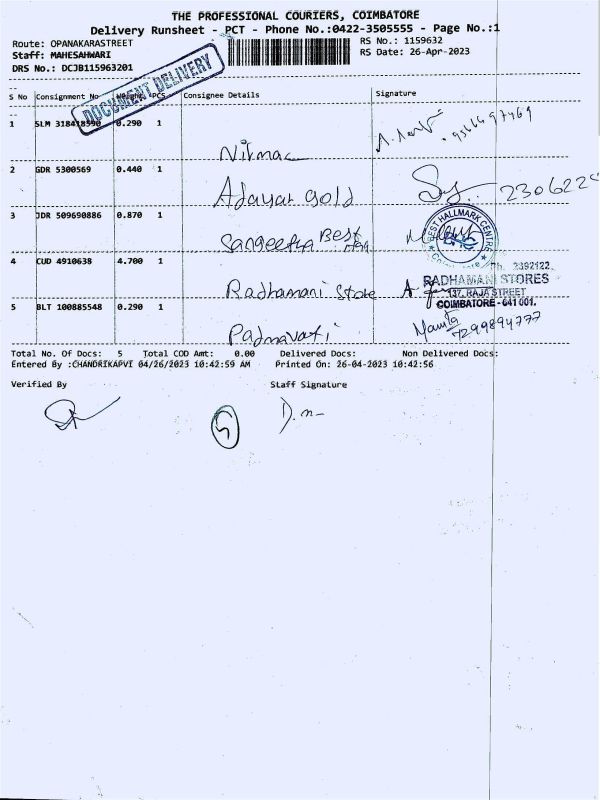 THE PROFESSIONAL COURIERS, COIMBATORE
Delivery Runsheet - PCT - Phone No.:0422-3505555 - Page No.:1
Route: OPANAKARASTREET
RS No.: 1159632
Staff: MAHESAHWARI
RS Date: 26-Apr-2023
DRS No.: DCJB115963201
DOCUMENT DELIVERY
S No Consignment No Weight PCS Consignee Details Signature
1 SLM 318418590 0.290 1
Nirmac
2 GDR 5300569 0.440 1
Adayar gold 230622
3 JDR 509690886 0.870 1
Sangeetha Best
BEST HALLMARK CENTRE
4 CUD 4910638 4.700 1
Ph. 2392122
Radhamani Store
RADHAMANI STORES
137, RAJA STREET
COIMBATORE - 641 001.
5 BLT 100885548 0.290 1
Padmavati
Mamta
7299894777
Total No. Of Docs: 5 Total COD Amt: 0.00 Delivered Docs: Non Delivered Docs:
Entered By :CHANDRIKAPVI 04/26/2023 10:42:59 AM Printed On: 26-04-2023 10:42:56
Verified By Staff Signature
5 D.m